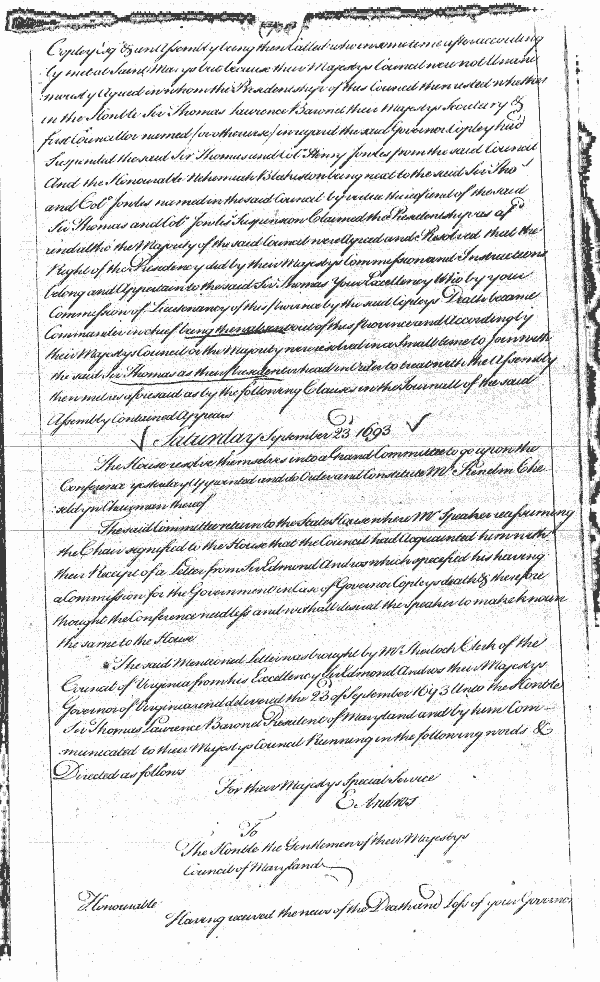 Copley Esq & an Assembly being then Called who in some time after according
ly met at Saint Marys but because their Majestys Council were not Unani
mously Agreed in whom the Presidentship of this Council then rested whether
in the Honble Sir Thomas Lawrence Baronet their Majestys Secretary &
first Councillor named (or otherwise) in regard the said Governor Copley had
Suspended the said Sir Thomas and Col. Henry Jowles from the said Council
And the Honourable Nehemiah Blakiston being next to the said Sir Tho.
and Col. Jowles named in the said Council by virtue thereof and of the said
Sir Thomas and Col. Jowles Suspension Claimed the Presidentship as afd
and altho' the Majority of the said Council were Agreed and Resolved that the
Right of the Presidency did by their Majestys Commission and Instructions
belong and Appertain to the said Sir Thomas Your Excellency Who by your
Commission of Lieutenancy of this Province by the said Copleys Death became
Commander in chief being then absent out of this Province and Accordingly
their Majestys Council or the Majority were resolved in a Small time to Join with
the said Sir Thomas as their President or head in Order to treat with the Assembly
then met as aforesaid as by the following Clauses in the Journall of the said
Assembly Contained Appears
Saturday September 23 1693
The House resolve themselves into a Grand Committee to go upon the
Conference yesterday Appointed and do Order and Constitute Mr Kenelm Che
seldyn Chairman thereof
The said Committee return to the State House where Mr Speaker reassuming
the Chair signified to the House that the Council had Acquainted him with
their Receipt of a Letter from Sir Edmond Andros which specified his having
a Commission for the Government in Case of Governor Copleys death & therefore
thought the Conference needless and withall desired the Speaker to make known
the same to the House
The said Mentioned Letter was brought by Mr Sherlock Clerk of the
Council of Virginia from his Excellency Sir Edmond Andros their Majestys
Governor of Virginia and delivered the 23 of September 1693 Unto the Honble
Sir Thomas Lawrence Baronet President of Maryland and by him Com-
municated to their Majestys Council Running in the following words &
Directed as follows
For their Majestys Special Service
E Andros
To
The Honble the Gentlemen of their Majestys
Council of Maryland
Honourable
Having received the news of the Death and loss of your Governor